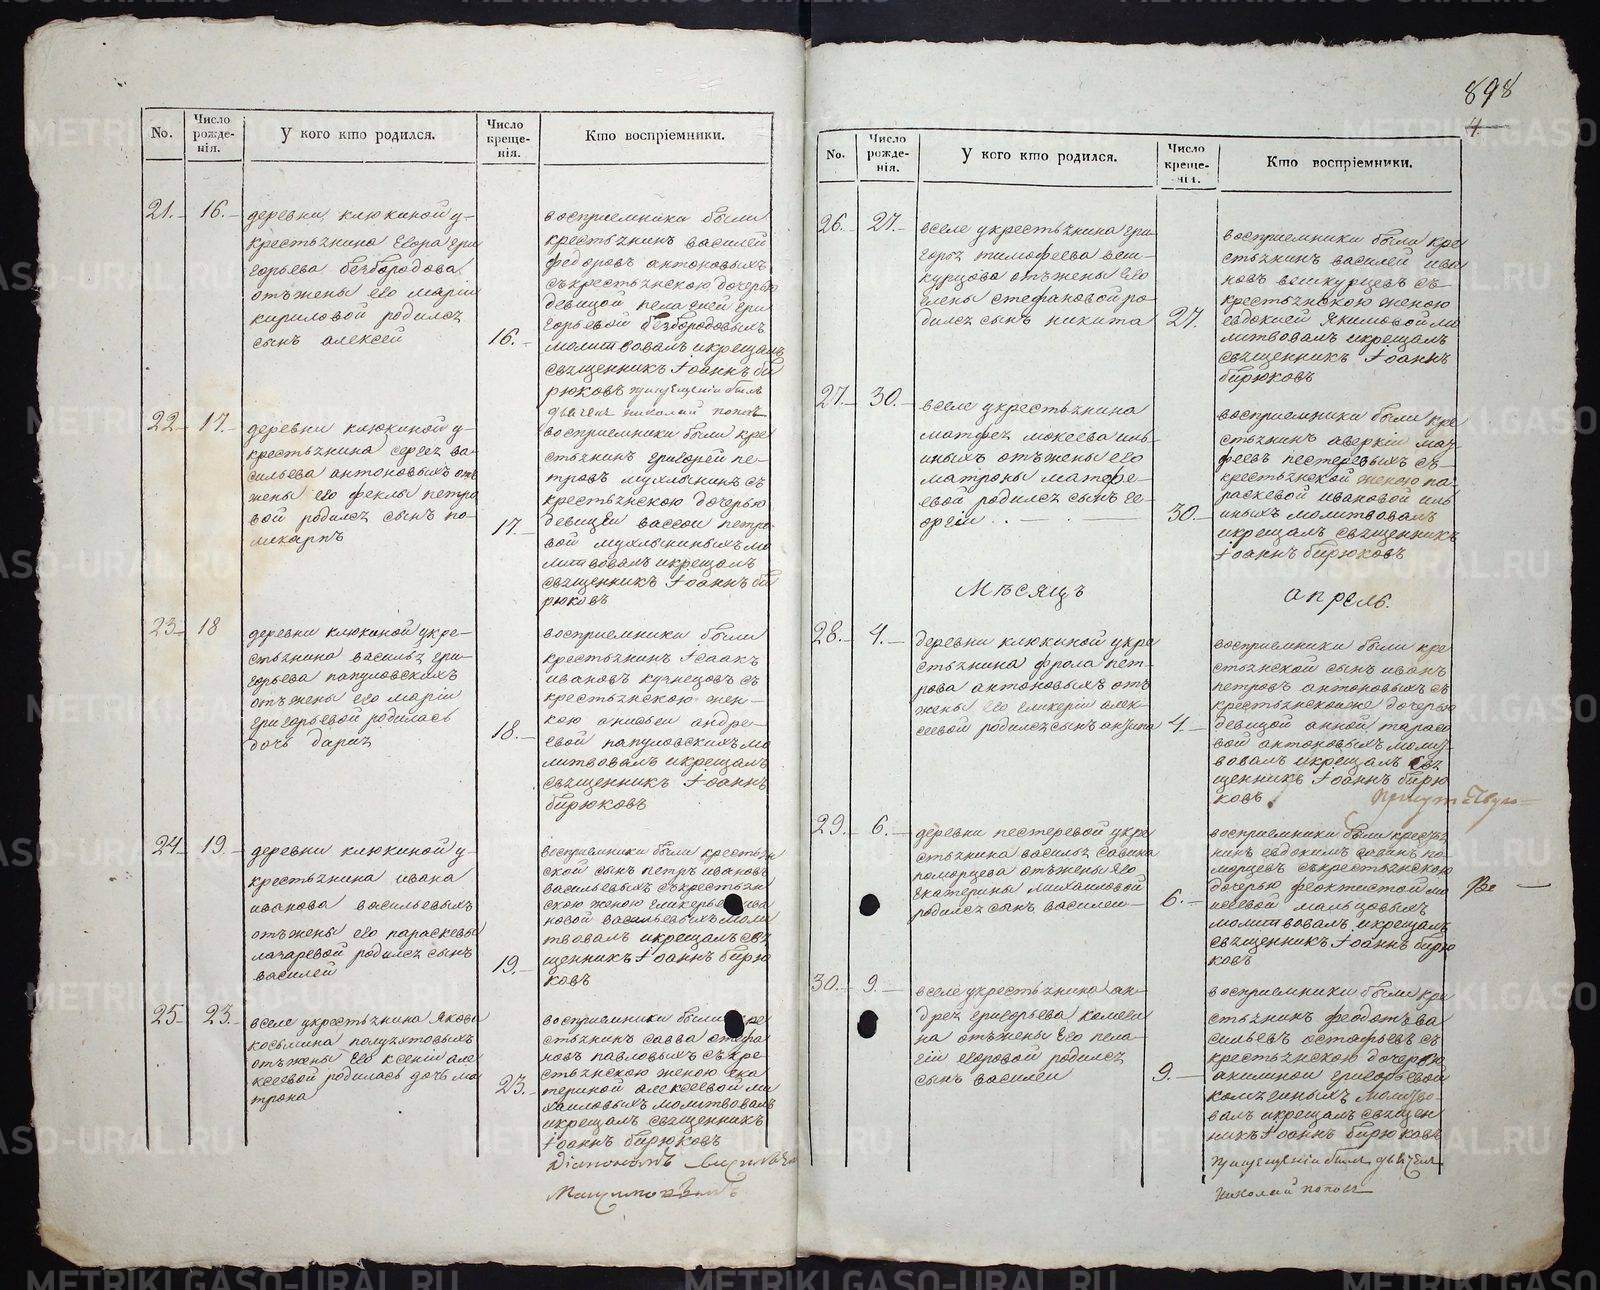 898
4.
No.
Число рожде-нія.
У кого кто родился.
Число креще-нія.
Кто воспріемники.
21. 16.
деревни клюкиной у-
крестьянина Егора гри
горьева безбородова
отъ жены его маріи
кириловой родилсѧ
сынъ алексей
16.
восприемники были
крестьянинъ василей
федоровъ антоновыхъ
съ крестьянскою дочерью
девицой пелагией гри
горьевой безбородовыхъ
молитвовалъ и крещалъ
священникъ Іоаннъ би
рюковъ при крещеніи былъ
дьячекъ николай поповъ
22. 17.
деревни клюкиной у-
крестьянина сергея ва
сильева антоновыхъ отъ
жены его феклы петро
вой родилсѧ сынъ по-
ликарпъ
17.
восприемники были кре
стьянинъ григорей пе-
тровъ мухлынинъ съ
крестьянскою дочерью
девицей вассои петро
вой мухлыниныхъ мо
литвовалъ и крещалъ
священникъ Іоаннъ би
рюковъ
23. 18
деревни клюкиной у кре-
стьянина василья гри-
горьева папуловскихъ
отъ жены его маріи
григорьевой родилась
дочь дарья
18.
восприемники были
крестьянинъ Ісаакъ
ивановъ кузнецовъ съ
крестьянскою жен-
кою анисьеи андре-
евой папуловскихъ мо
литвовалъ и крещалъ
священникъ Іоаннъ
бирюковъ
24. 19.
деревни клюкиной у-
крестьянина ивана
иванова васильевыхъ
отъ жены его параскевы
лазаревой родилсѧ сынъ
василей
19.
восприемники были крестьян
ской сынъ петръ ивановъ
васильевыхъ съ крестьян
скою женою гликерьей ива
новой васильевыхъ моли
твовалъ и крещалъ свя
щенникъ Іоаннъ бирю
ковъ
25. 23.
в селе у крестьянина Якова
косьмина полуяхтовыхъ
отъ жены его ксеніи але
ксеевой родилась дочь ма
трона
23.
восприемники были кре
стьянинъ савва стефа
новъ павловыхъ съ кре
стьянскою женою ека
териной алексеевой ми
хаиловыхъ молитвовалъ
и крещалъ священникъ
Іоаннъ бирюковъ
No.
Число рожде-нія.
У кого кто родился.
Число креще-нія.
Кто воспріемники.
26. 27.
в селе у крестьянина гри-
горья тимофеева веш-
курцова отъ жены его
Елены стефановой ро-
дилсѧ сынъ никита
27.
восприемники были кре
стьянинъ василей ива
новъ вешкурцевъ съ-
крестьянскою женою
евдокией Якимовой мо
литвовалъ и крещалъ
священникъ Іоаннъ
бирюковъ
27. 30.
в селе у крестьянина
матфея мокеева иль-
иныхъ отъ жены его
матроны матфе-
евой родилсѧ сынъ ге-
оргіи
30.
восприемники были кре
стьянинъ аверкіи мат
феевъ пестеревыхъ съ-
крестьянской женою па-
раскевой ивановой иль
иныхъ молитвовалъ
и крещалъ священникъ
Іоаннъ бирюковъ
Мѣсяцъ апрель.
28. 4.
деревни клюкиной у кре
стьянина фрола пет-
рова антоновыхъ отъ
жены его гликеріи алек-
сеевой родилсѧ сынъ антипа
4.
восприемники были кре
стьянской сынъ иванъ
петровъ антоновыхъ съ
крестьянской же дочерью
девицой анной тарасо
вой антоновыхъ молит
вовалъ и крещалъ свя
щенникъ Іоаннъ бирю
ковъ
29. 6.
деревни пестеревой у кре
стьянина василья савина
поморцева отъ жены его
Екатерины михаиловой
родилсѧ сынъ василеи
6.
восприемники были крестья
нинъ евдокимъ савинъ по-
морцевъ съ крестьянскою
дочерью феоктистой мо
исеевой мальцовыхъ
молитвовалъ и крещалъ
священникъ Іоаннъ бирю
ковъ
30. 9.
в селе у крестьянина ан-
дрея григорьева комеги
на отъ жены его пела-
геи егоровой родилсѧ
сынъ василеи
9.
восприемники были кре
стьянинъ феодотъ ва
сильевъ остафьевъ съ
крестьянскою дочерью
акилиной григорьевой
молитво-
валъ и крещалъ священ
никъ Іоаннъ бирюковъ
при крещеніи былъ дьячекъ
николай поповъ
METRIKI.GASO-URAL.RU